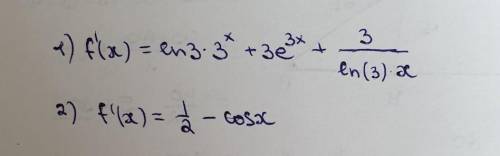 1) f'(x) = ln3·3^x + 3e^{3x} + \frac{3}{ln(3)·x}
2) f'(x) = \frac{1}{2} - cosx